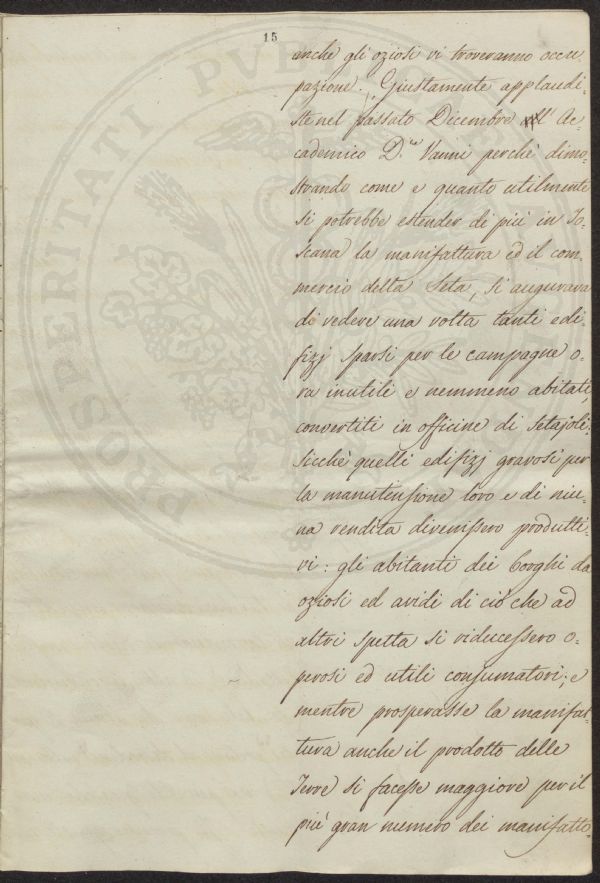 15
anche gli oziosi vi troveranno occu
pazione. Giustamente applaudi-
ste nel passato Dicembre all' Ac-
cademico D.re Vanni perchè dimo-
strando come e quanto utilmente
si potrebbe estender di più in To-
scana la manifattura ed il com-
mercio della Seta, si augurava
di vedere una volta tanti edi-
fizj sparsi per le campagne o-
ra inutili e nemmeno abitati,
convertiti in officine di Setajoli;
sicchè quelli edifizj gravosi per
la manutensione loro e di niu-
na rendita divenissero produtti-
vi: gli abitanti dei Borghi da
oziosi ed avidi di ciò che ad
altri spetta si riducessero o-
perosi ed utili consumatori; e
mentre prosperasse la manifat-
tura anche il prodotto delle
Terre si facesse maggiore per il
più gran numero dei manifatto-
PROSPERITATI PVB